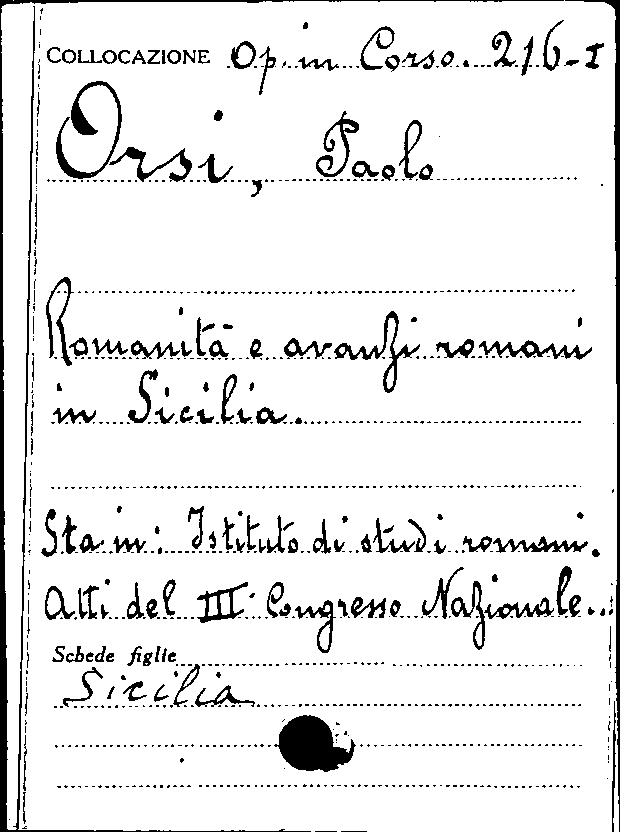 COLLOCAZIONE Op. in Corso. 216-I
Orsi, Paolo
Romanità e avanzi romani
in Sicilia.
Sta in: Istituto di studi romani.
Atti del III° Congresso Nazionale...
Schede figlie
Sicilia